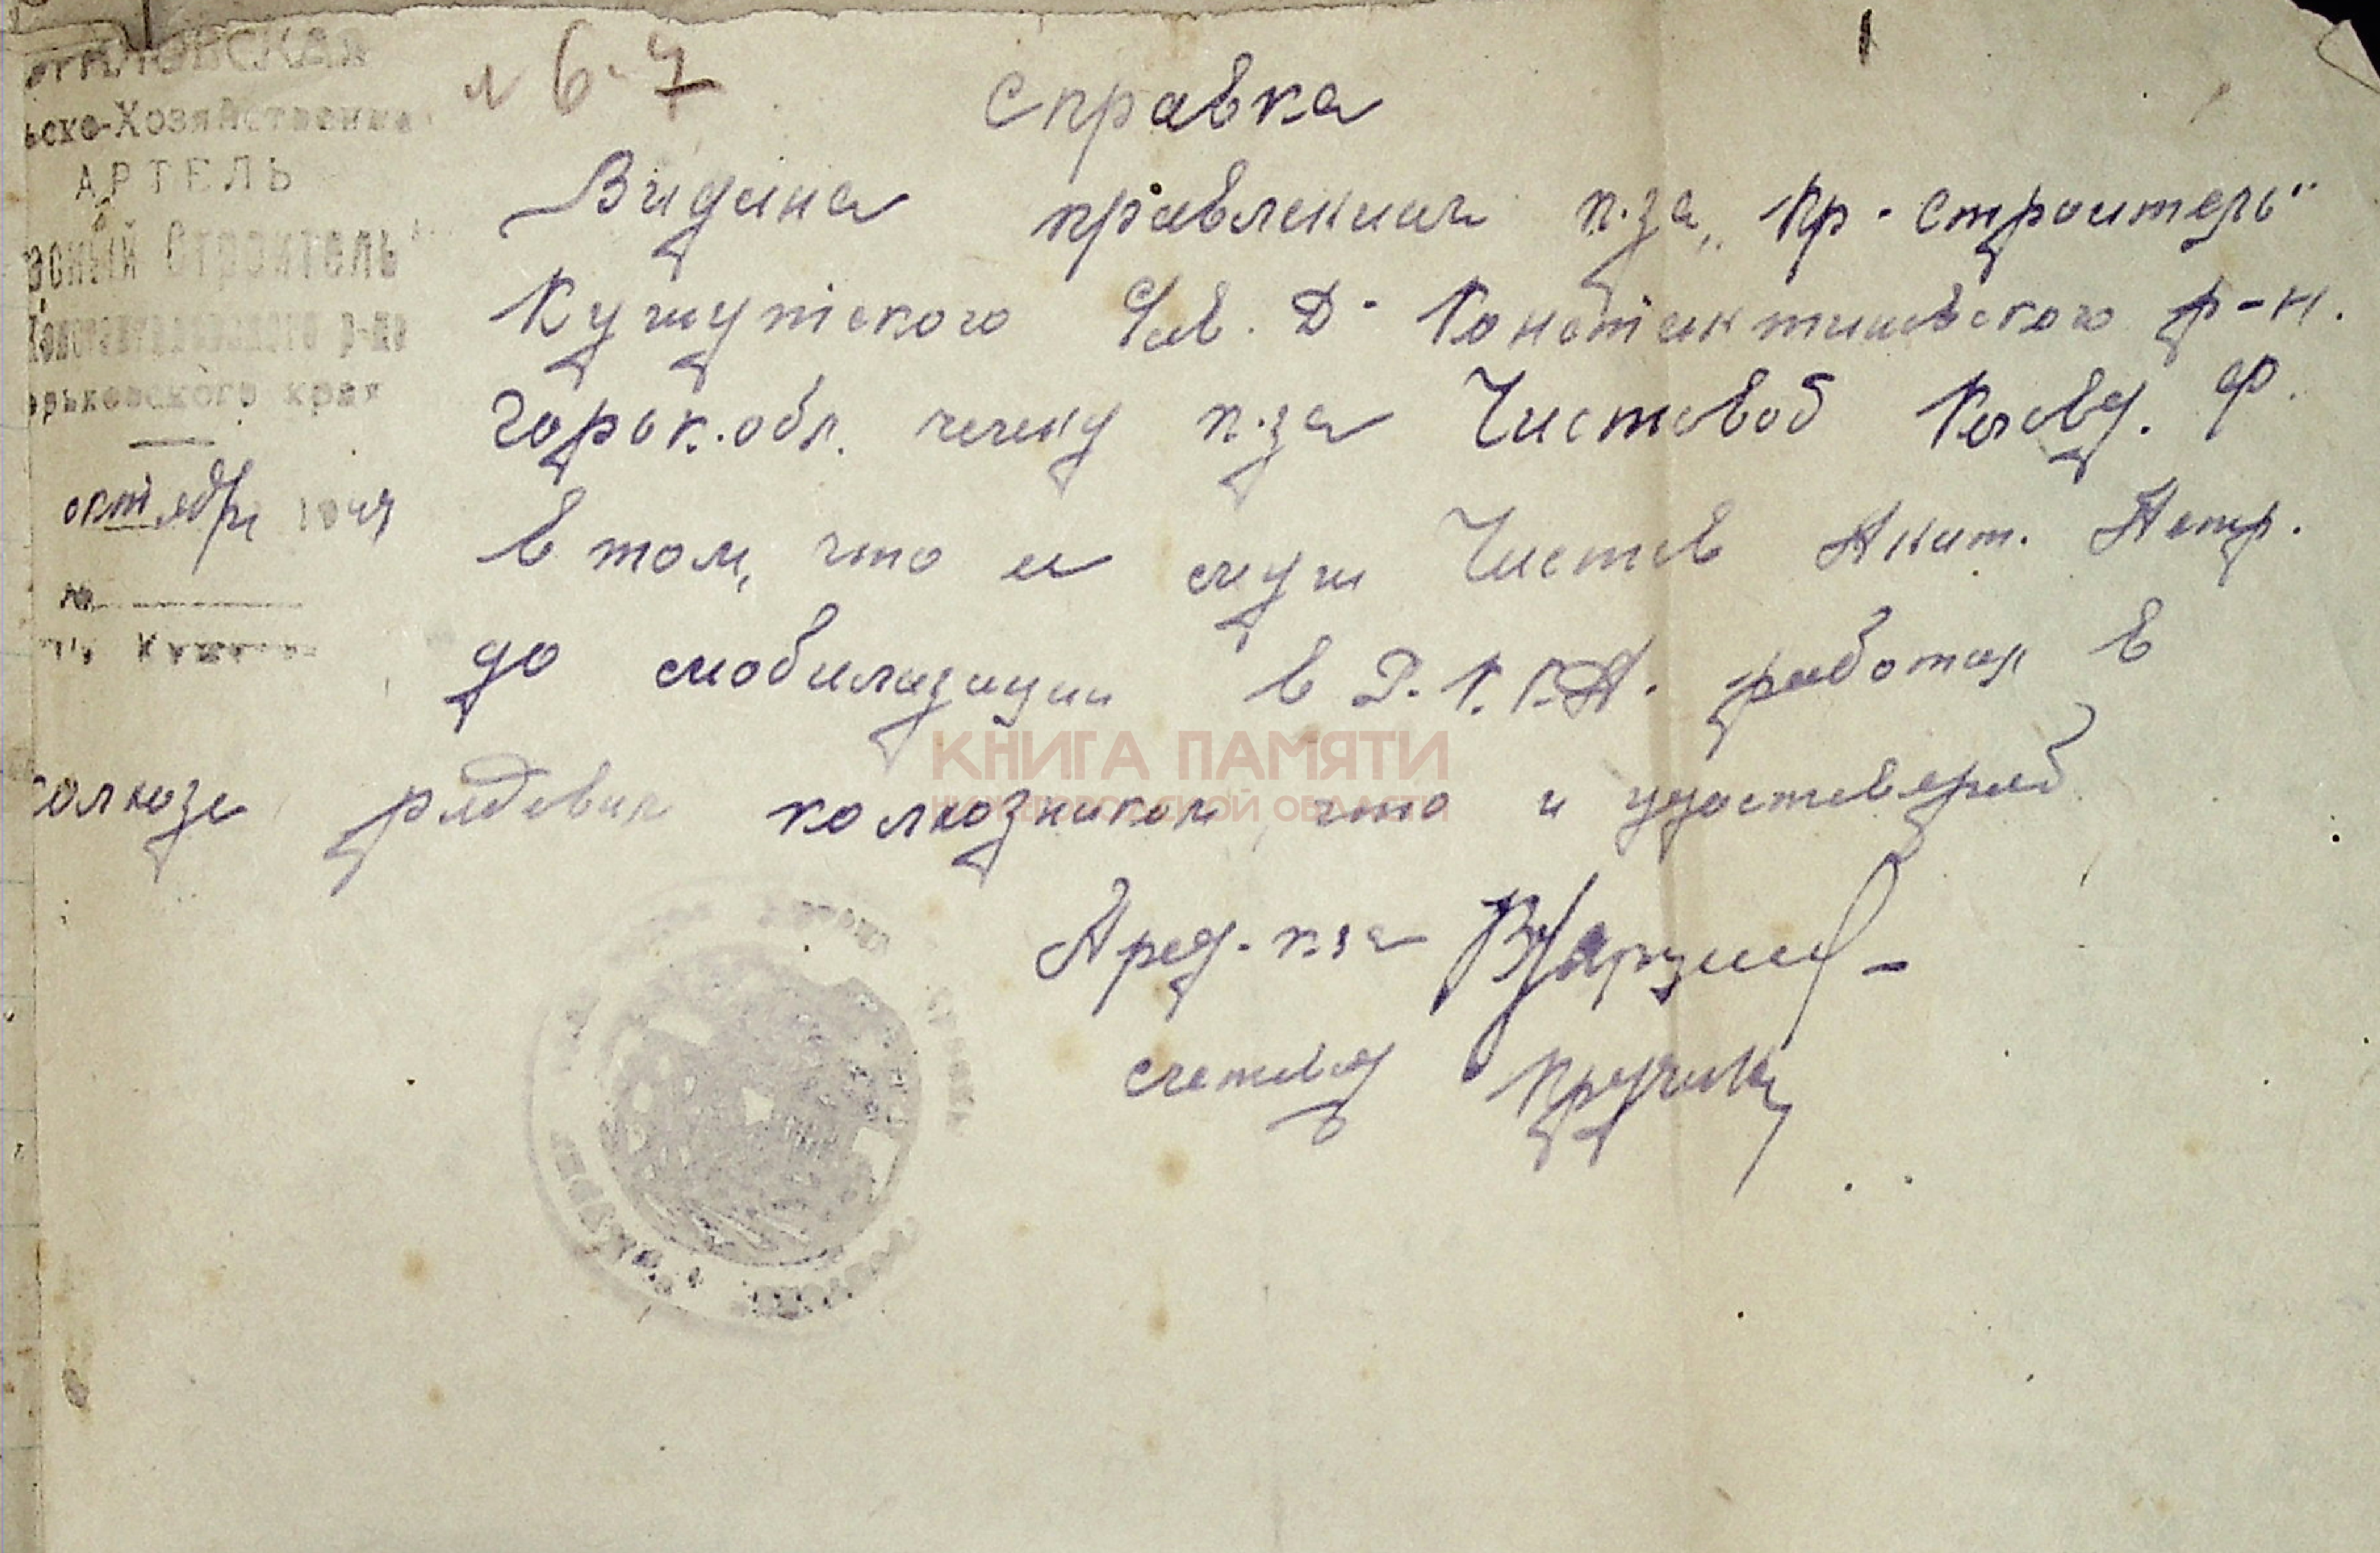 ьско-Хозяйственная
АРТЕЛЬ
асный Строитель"
Константиновского р-на
орьковского края
октября 1944
№
л 6-7
1
Справка
Видана правлением к.за „Кр-строитель"
Кужутского Сов. Д-Константиновского р-н.
Горьк.обл. члену к.за Чистовой Клавд. Ф.
в том, что ее муж Чистов Акит. Петр.
до мобилизации в Р.К.К.А. работал в
колхозе рядовым колхозником, что и удостоверяет
Пред-к-за
счетовод
КНИГА ПАМЯТИ
НИЖЕГОРОДСКОЙ ОБЛАСТИ